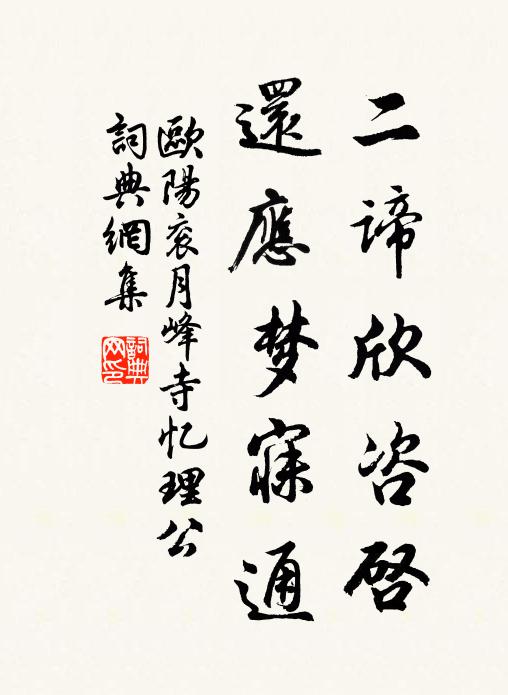 二諦欣咨啓
還應梦寐通
歐陽衮月峰寺忆理公
詞典網集
詞典网印